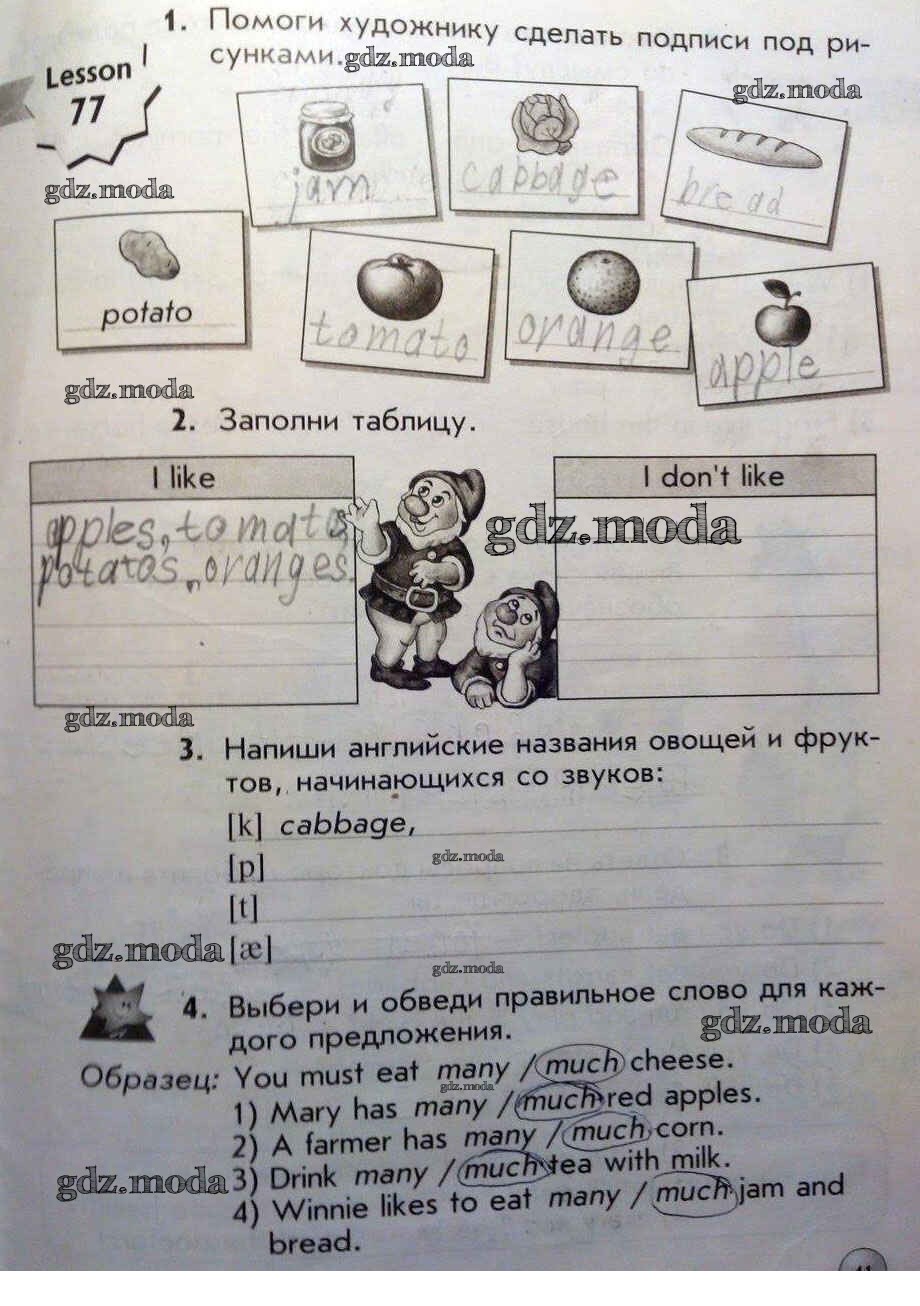 1. Помоги художнику сделать подписи под ри-
сунками. gdz.moda
Lesson
77
gdz.moda
gdz.moda
jam
cabbage
bread
potato
tomato
orange
apple
gdz.moda
2. Заполни таблицу.
I like
I don't like
apples, tomatos
potatos, oranges.
gdz.moda
gdz.moda
3. Напиши английские названия овощей и фрук-
тов, начинающихся со звуков:
[k] cabbage,
gdz.moda
[p]
[t]
gdz.moda
[æ]
gdz.moda
4. Выбери и обведи правильное слово для каж-
дого предложения.
gdz.moda
Образец: You must eat many / much cheese.
gdz.moda
1) Mary has many / much red apples.
2) A farmer has many / much corn.
3) Drink many / much tea with milk.
gdz.moda
4) Winnie likes to eat many / much jam and
bread.